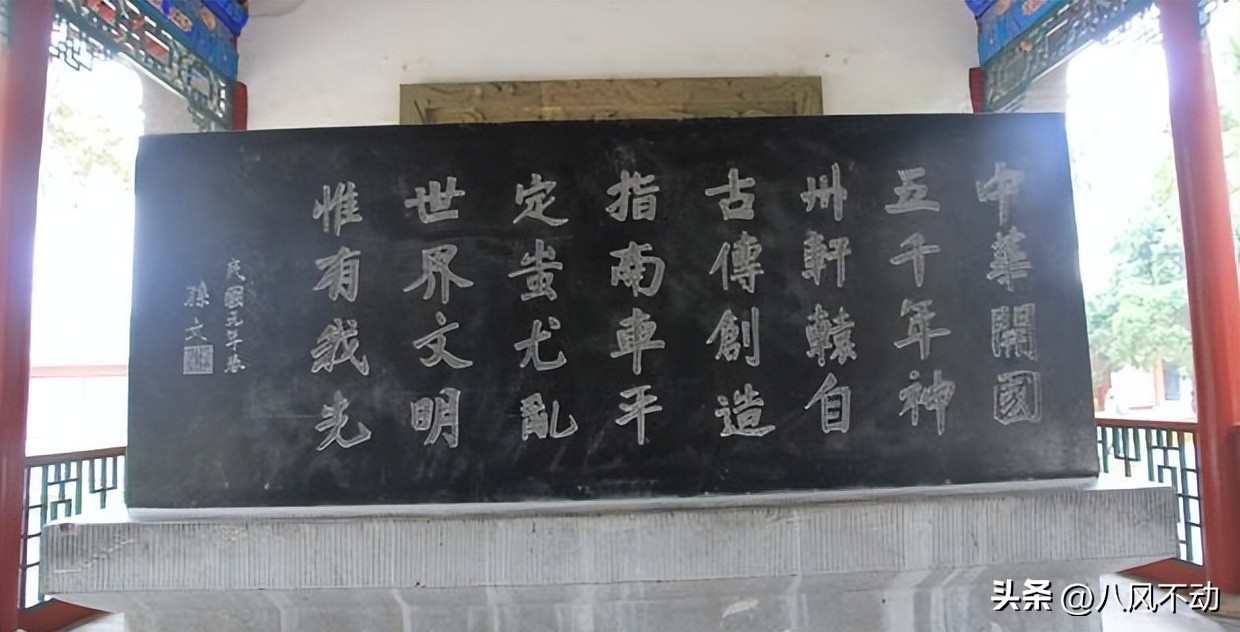 中華開國
五千年神
州軒轅自
古傳創造
指南車平
定蚩尤亂
世界文明
惟有我先
民國元年春
孫文
头条 @八风不动